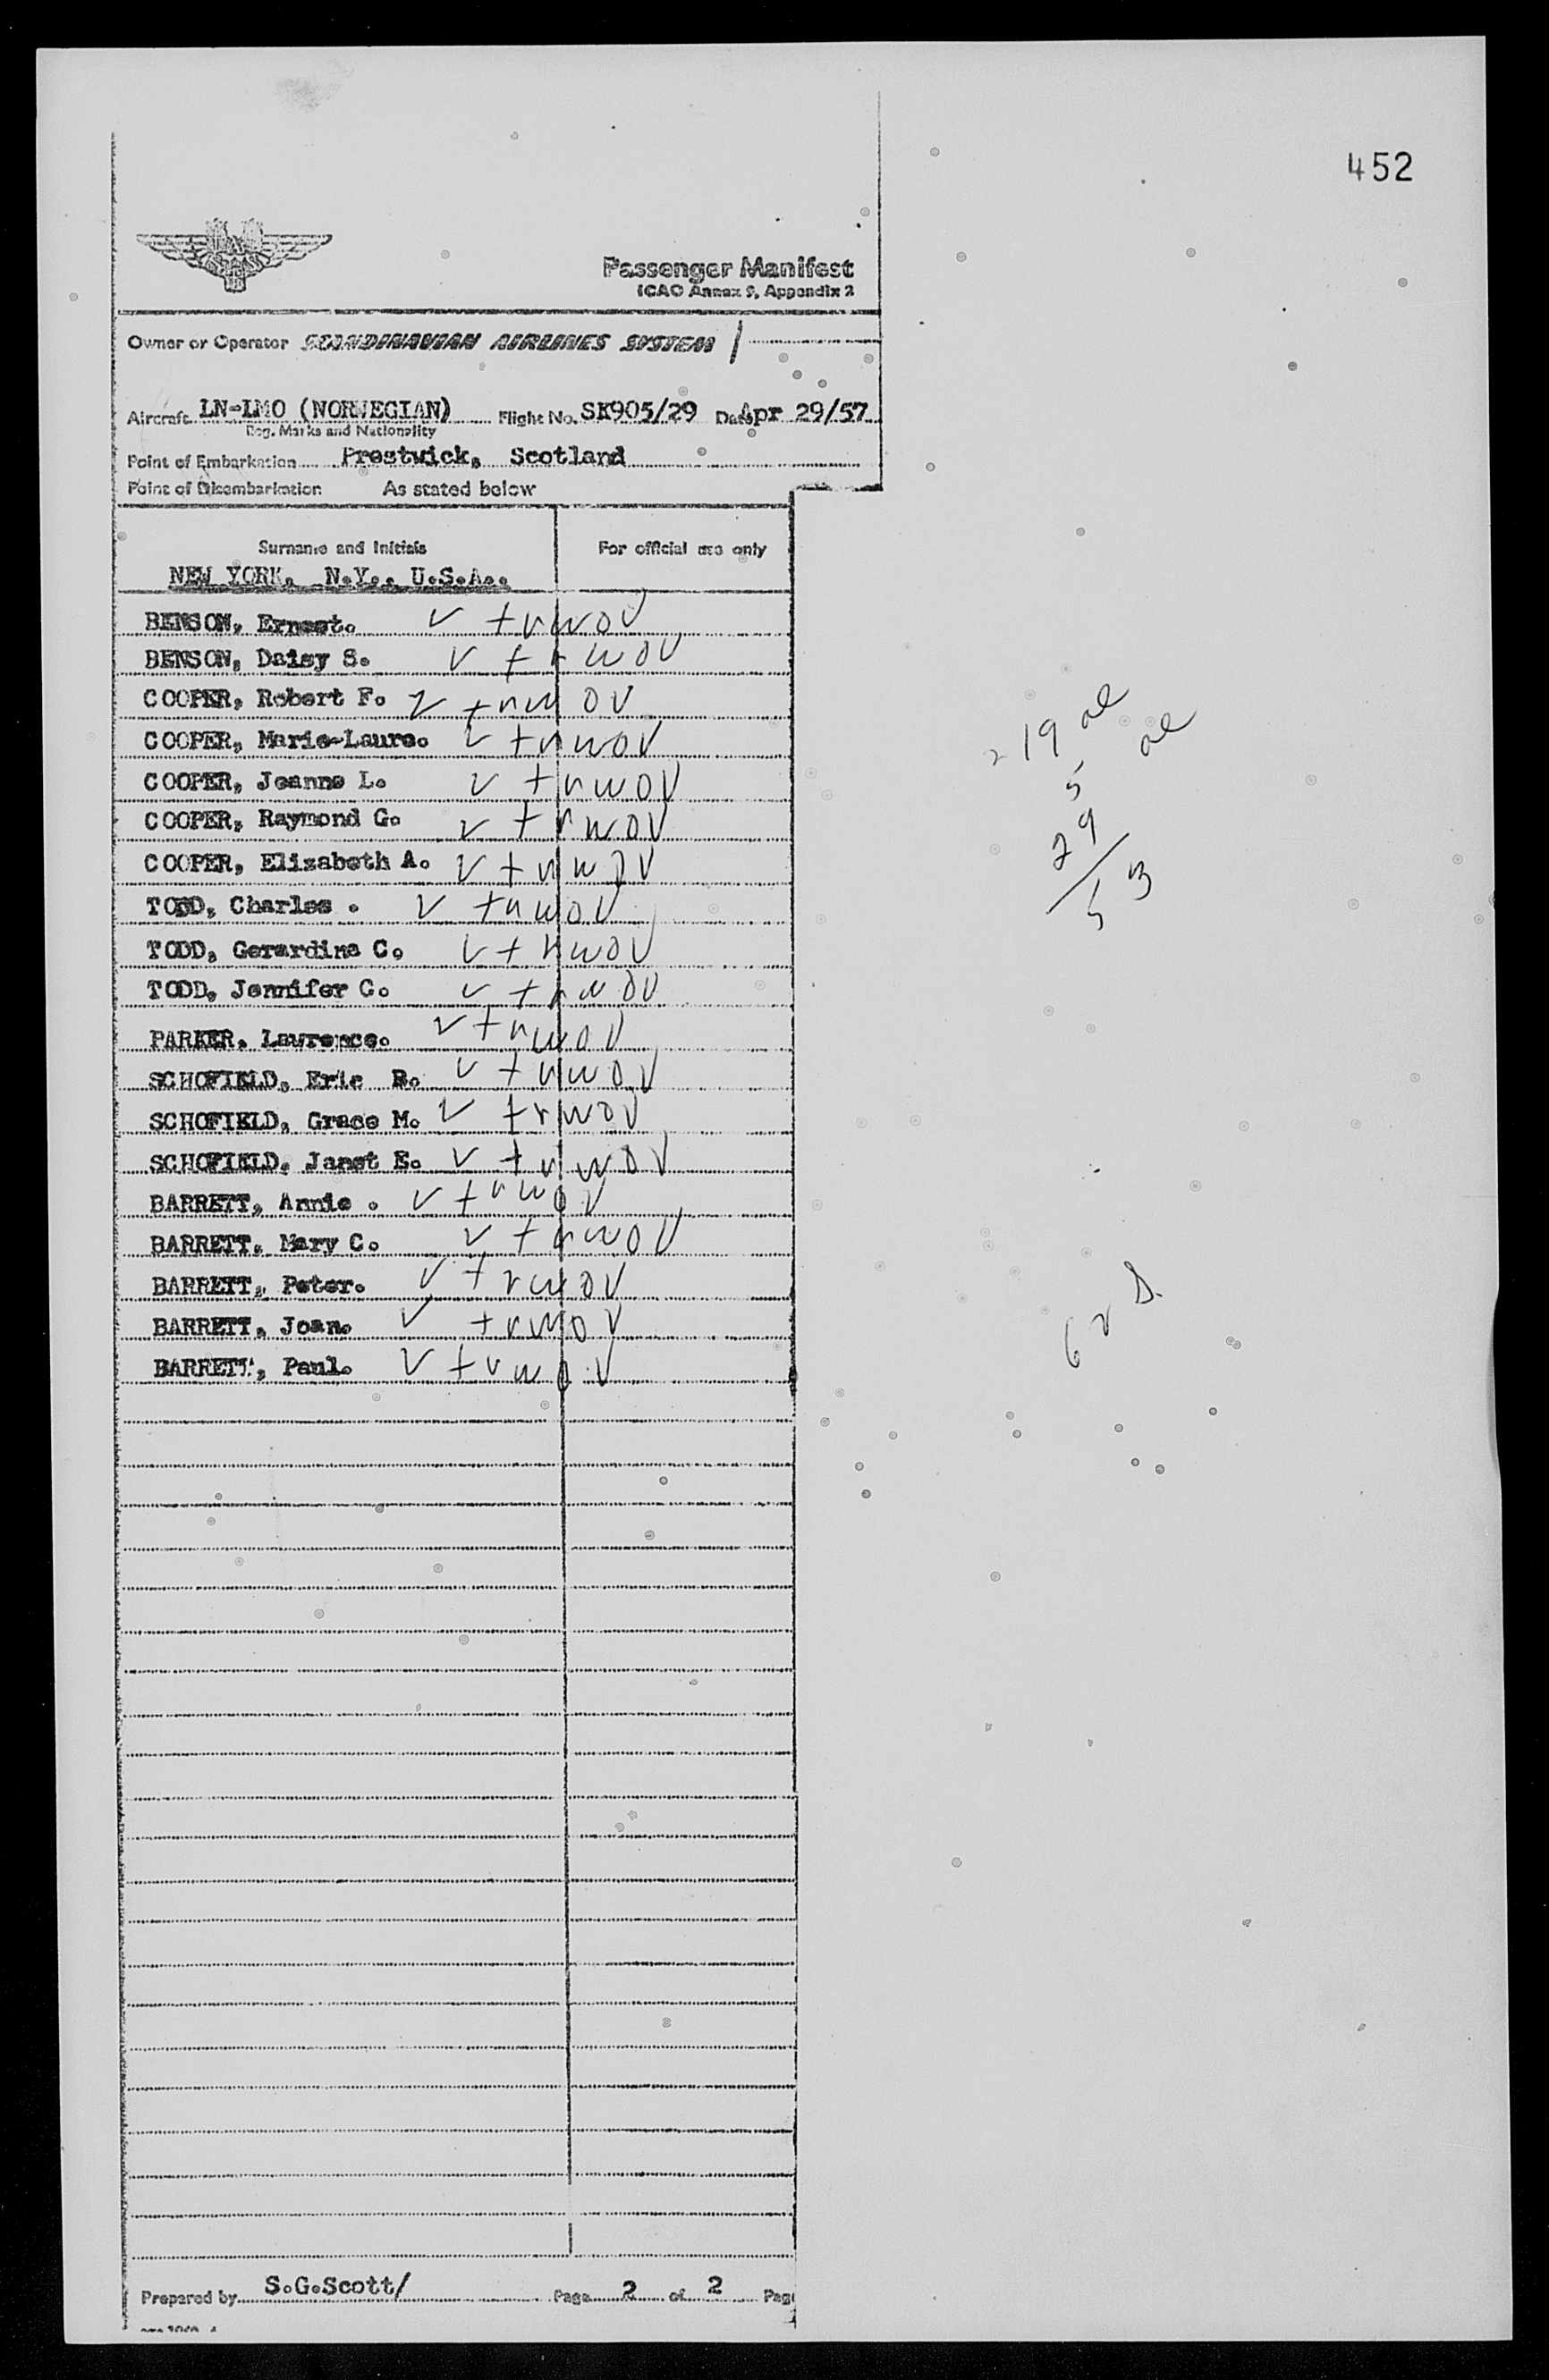 452
Passenger Manifest
ICAO Annex 9, Appendix 2
Owner or Operator SCANDINAVIAN AIRLINES SYSTEM
Aircraft LN-LMO (NORWEGIAN) Flight No. SK905/29 Date Apr 29/57
Reg. Marks and Nationality
Point of Embarkation Prestwick, Scotland
Point of Disembarkation As stated below
Surname and Initials For official use only
NEW YORK, N.Y., U.S.A..
BENSON, Ernest.
BENSON, Daisy S.
COOPER, Robert F.
COOPER, Marie-Laure.
COOPER, Jeanne L.
COOPER, Raymond G.
COOPER, Elizabeth A.
TODD, Charles .
TODD, Gerardina C.
TODD, Jennifer C.
PARKER, Lawrence.
SCHOFIELD, Eric B.
SCHOFIELD, Grace M.
SCHOFIELD, Janet E.
BARRETT, Annie .
BARRETT, Mary C.
BARRETT, Peter.
BARRETT, Joan.
BARRETT, Paul.
19
5
29
53
Prepared by S.G.Scott/ Page 2 of 2 Pag